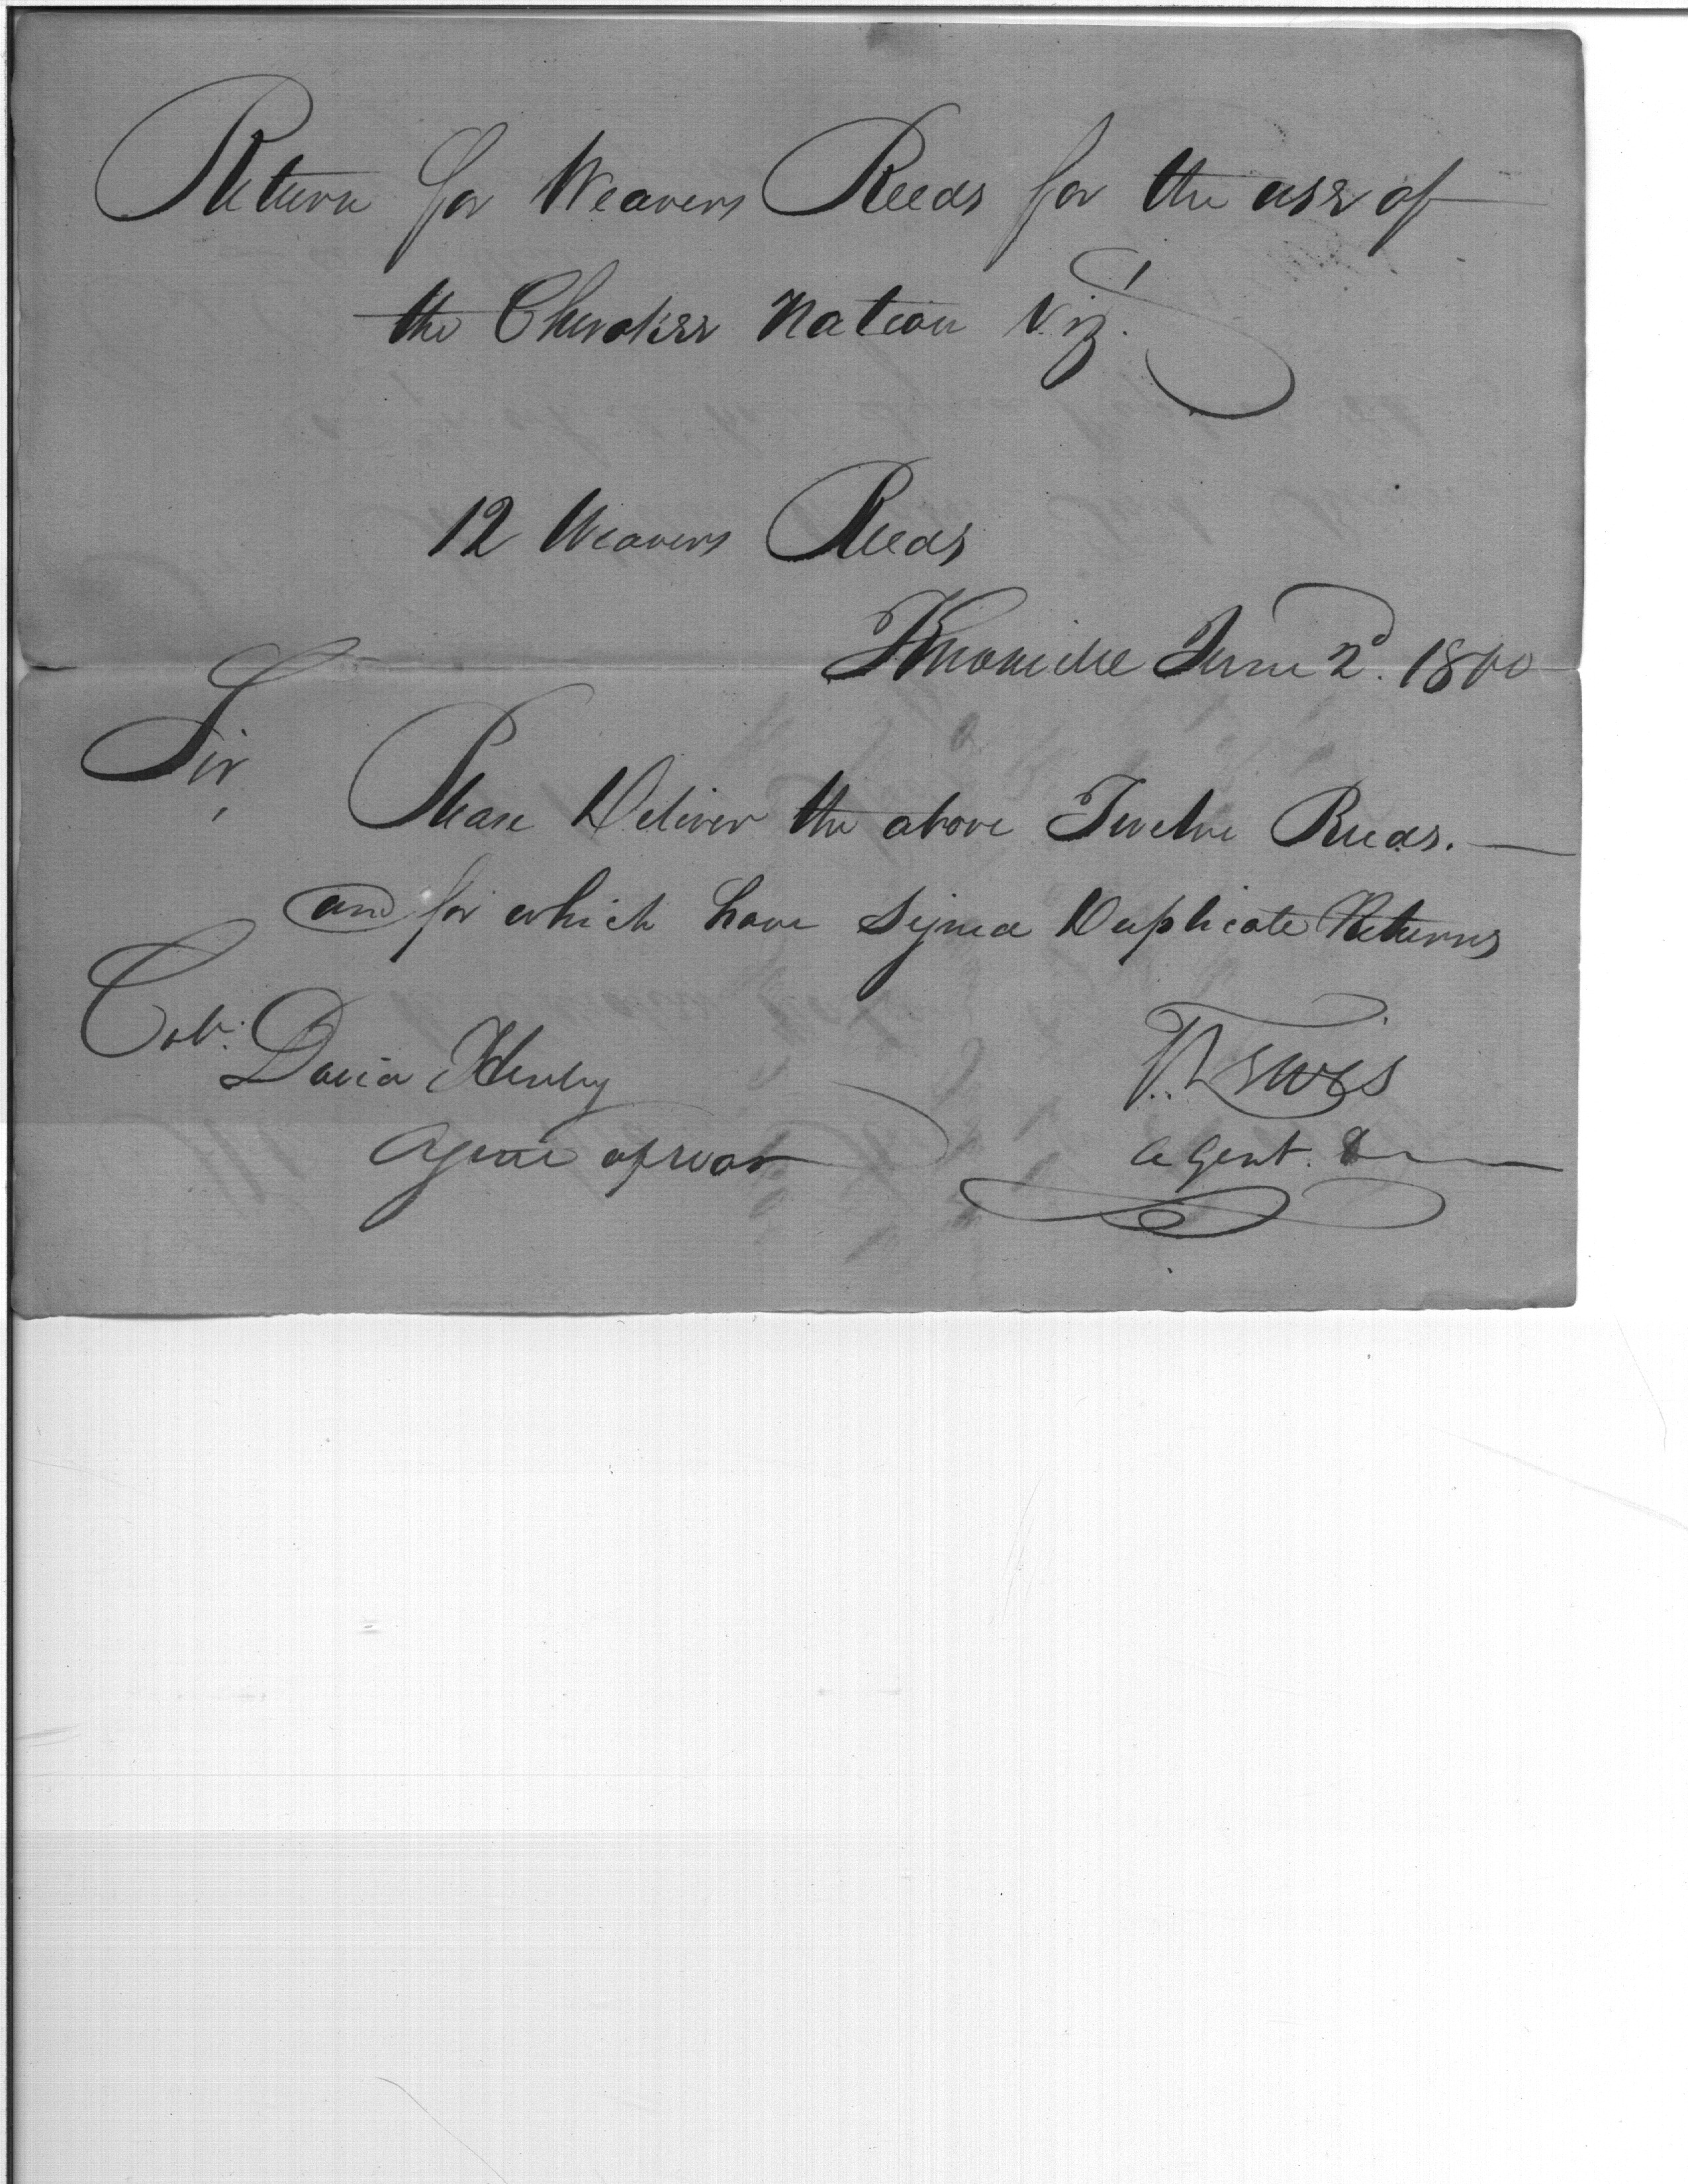 Return for Weavers Reeds for the use of
the Cherokee Nation Viz.
12 Weavers Reeds
Knoxville June 2d. 1800
Sir,
Please Deliver the above Twelve Reeds.
and for which have Signed Duplicate Returns
Col: David Henley
Agent of war
Lewis
agent &